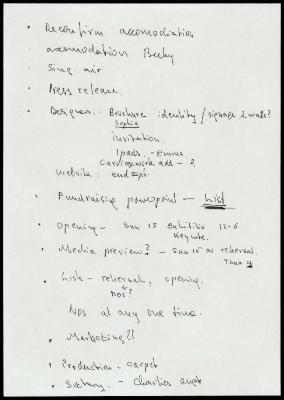 • Reconfirm accomodiation
• accomodation Becky
• Sing. air
• Press release.
• Designer: Brochure identity / signage 2 walls?
Sophia
invitation.
Ipads - Emma
add - ?
website: end sept.
• Fundraising powerpoint - List
• Opening - Sun 15 exhibition 12-6
Keynote.
• Media preview? - Sun 15 or rehersal.
Thur
• List - rehersal, opening.
nos?
Nos at any one time.
• Marketing?!
• Production - carpet
• - Charlies